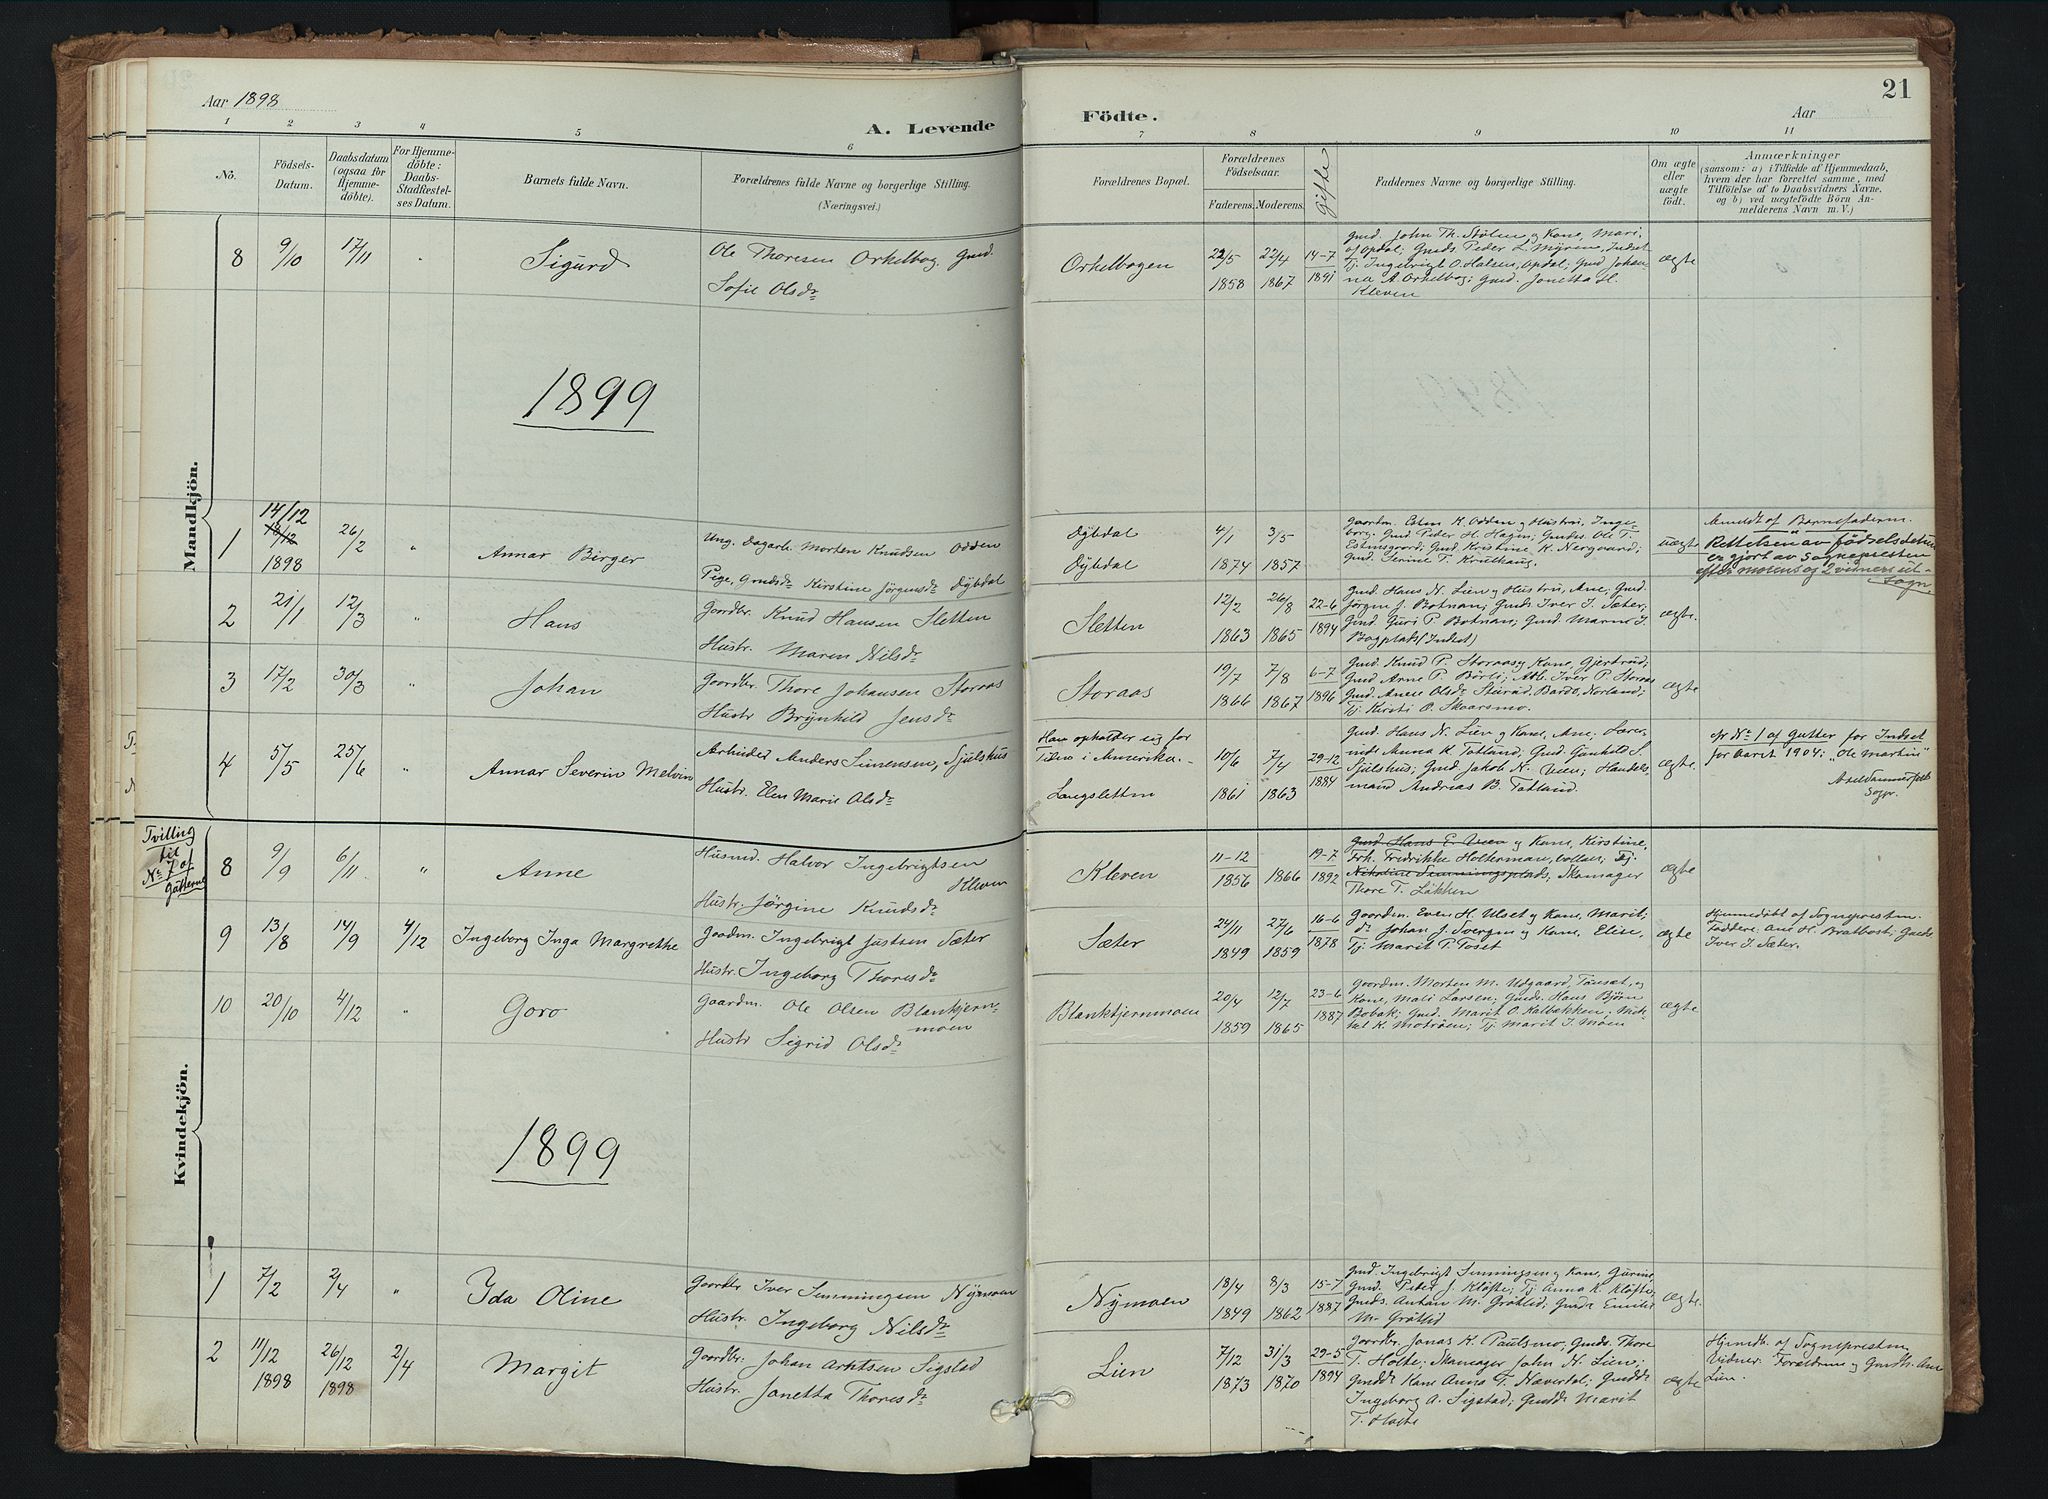 Aar 1898
A. Levende
Födte.
Aar
21
1 2 3 4 5 6 7 8 9 10 11
No.
Födsels-
Datum.
Daabsdatum
(ogsaa for
Hjemme-
döbte).
For Hjemme-
döbte:
Daabs-
Stadfæstel-
ses Datum.
Barnets fulde Navn.
Forældrenes fulde Navne og borgerlige Stilling.
(Næringsvei.)
Forældrenes Bopæl.
Forældrenes
Födselsaar.
Faderens. Moderens.
Gifte
Faddernes Navne og borgerlige Stilling.
Om ægte
eller
uægte
födt.
Anmærkninger
(saasom: a) i Tilfælde af Hjemmedaab,
hvem der har forrettet samme, med
Tilföielse af to Daabsvidners Navne.
og b) ved uægtefödte Börn An-
melderens Navn m. V.)
Mandkjön.
8 9/10 17/11 " Sigurd
Ole Thoresen Orkelbog, Gmd.
Sofie Olsdr
Orkelbogen
22/5 1858 22/4 1867 14-7 1891
Gmd. John Th. Stölen og Kone, Mari,
af Opdal; Gmds Peder L. Myren, Indset
Tj. Ingebrigt O. Halsen, Opdal; Gmd Johan-
na A. Orkelbog; Gmd. Jonetta H.
Kleven
ægte
1899
1 14/12 18/12 1898 26/2 " Annar Birger
Ung. Dagarb. Morten Knudsen Odden
Pige, Gmdsdr Kirstine Jörgensdr Dybdal
Dybdal
Dybdal
4/1 1874 3/5 1857
Gaardm. Esten K. Odden og Hustru, Inge-
borg; Gmd Peder H. Hagen; Gmds. Ole T.
Estensgaard; Gmd. Kristine K. Nergaard;
Gmd. Serine T. Krulhaug.
uægte
Anmeldt af Barnefaderen.
Rettelsen av födselsdatum
er gjort av Sognepresten
efter morens og 2 vidners ut-
sagn
2 21/1 12/3 " Hans
Gaardbr. Knud Hansen Sletten
Hustr. Maren Nilsdr
Sletten
12/2 1863 26/8 1865 22-6 1894
Gmd. Hans N. Lien og Hustru, Ane; Gmd.
Jörgen J. Botnan; Gmds Iver I. Sæter;
Gmd. Guri P. Botnan; Gmd. Marne I.
Bogplads (Indset)
ægte.
3 17/2 30/3 " Johan
Gaardbr. Thore Johansen Storaas
Hustr Brynhild Jensdr
Storaas
19/7 1866 7/8 1867 6-7 1896
Gmd. Knud P. Storaas og Kone, Gjertrud;
Gmd Arne P. Börli; Arb. Iver P. Storaas
Gmd. Anne Olsdr Bardo, Norland;
Tj. Kirsti O. Skaarsmo.
ægte
4 5/5 25/6 " Annar Severin Melvin
Arbeider Anders Simensen, Sjulshus
Hustr. Elen Marie Olsdr
Han opholder sig for
Tiden i Amerika.
Langsletten
10/6 1861 7/4 1863 29-12 1884
Gmd. Hans N. Lien og Kone, Ane; Lærer-
inde Anna K. Totland; Gmd. Gunhild S.
Sjulshus; Gmd. Jakob N. Veen; Handels-
mand Andreas B. Totland.
ægte.
cfr No 1 af Gutter for Indset
for Aaret 1904: "Ole Martin"
Sogpr.
Kvindekjön.
Tvilling
til
No 7 af
gutterne
8 9/9 6/11 " Anne
Husmd. Halvor Ingebrigtsen
Kleven
Hustr. Jörgine Knudsdr
Kleven
11-12 1856 1866 19-7 1892
Gmd. Hans E. Veen og Kone, Kirstine,
Frk. Fredrikke Holterman, Vollan; Tj.
Nikoline Simmingsplads; Skomager
Thore T. Løkken
ægte
9 13/8 14/9 4/12 Ingeborg Inga Margrethe
Gaadm. Ingebrigt Justsen Sæter
Hustr. Ingeborg Thoresdr
Sæter
24/11 1849 27/6 1859 16-6 1878
Gaardm. Even H. Ulset og Kone, Marit;
do Johan J. Svergen og Kone, Elise,
Tj. Marit P. Toset
ægte
Hjemmedöbt af Sognepresten.
Faddere: Ane H. Bratbost; Gmds
Iver I. Sæter.
10 20/10 4/12 " Goro
Gaardm. Ole Olsen Blanktjern-
moen
Hustr Sigrid Olsdr
Blanktjernmoen
20/4 1859 12/7 1865 23-6 1887
Gaardm. Morten M. Udgaard, Tønset, og
Kone, Mali Larsen; Gmds. Hans Björn
Bobak; Gmd. Marit O. Kalbækken; Mik-
kel K. Motröen; Tj. Marit I. Moen
ægte
1899
1 7/2 2/4 " Ida Oline
Gaardbr Iver Simmingsen Nymoen
Hustr. Ingeborg Nilsdr
Nymoen
18/4 1849 8/3 1862 15-7 1887
Gmd. Ingebrigt Simmingsen og Kone, Gurine,
Gmd. Peter J. Klöfte; Tj Anna K. Klöfte,
Gmds. Anton M. Grötlid; Gmdr Emilie
M. Grötlid
ægte.
2 11/12 1898 26/12 1898 2/4 Margit
Gaardbr. Johan Arntsen Sigstad
Hustr. Janetta Thoresdr
Lien
7/12 1873 31/3 1870 29-5 1894
Gaardbr. Jonas K. Paulsmo; Gmds. Thore
T. Holte; Skomager John N. Lien;
Gmddr Kone Anna T. Næverdal; Gmddr
Ingeborg A. Sigstad; Gmddr Marit
T. Holte
ægte
Hjemdb. af Sognepresten
Vidner: Forældrene og Gmdk. Ane
Lien.